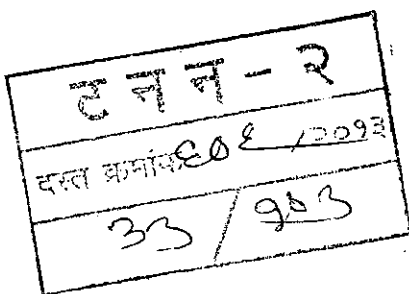 ट न न - २
दस्त क्रमांक ६०६ /२०१३
३३ / १०३